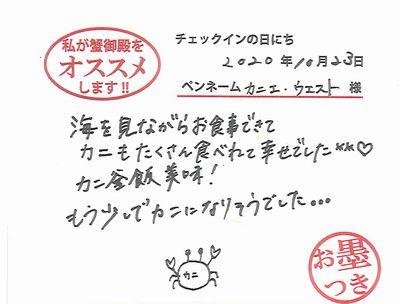 私が蟹御殿を
オススメ
します!!
チェックインの日にち
2020年10月23日
ペンネーム カニエ・ウエスト 様
海を見ながらお食事できて
カニもたくさん食べれて幸せでした**♡
カニ釜飯美味!
もう少しでカニになりそうでした...
カニ
お墨
つき